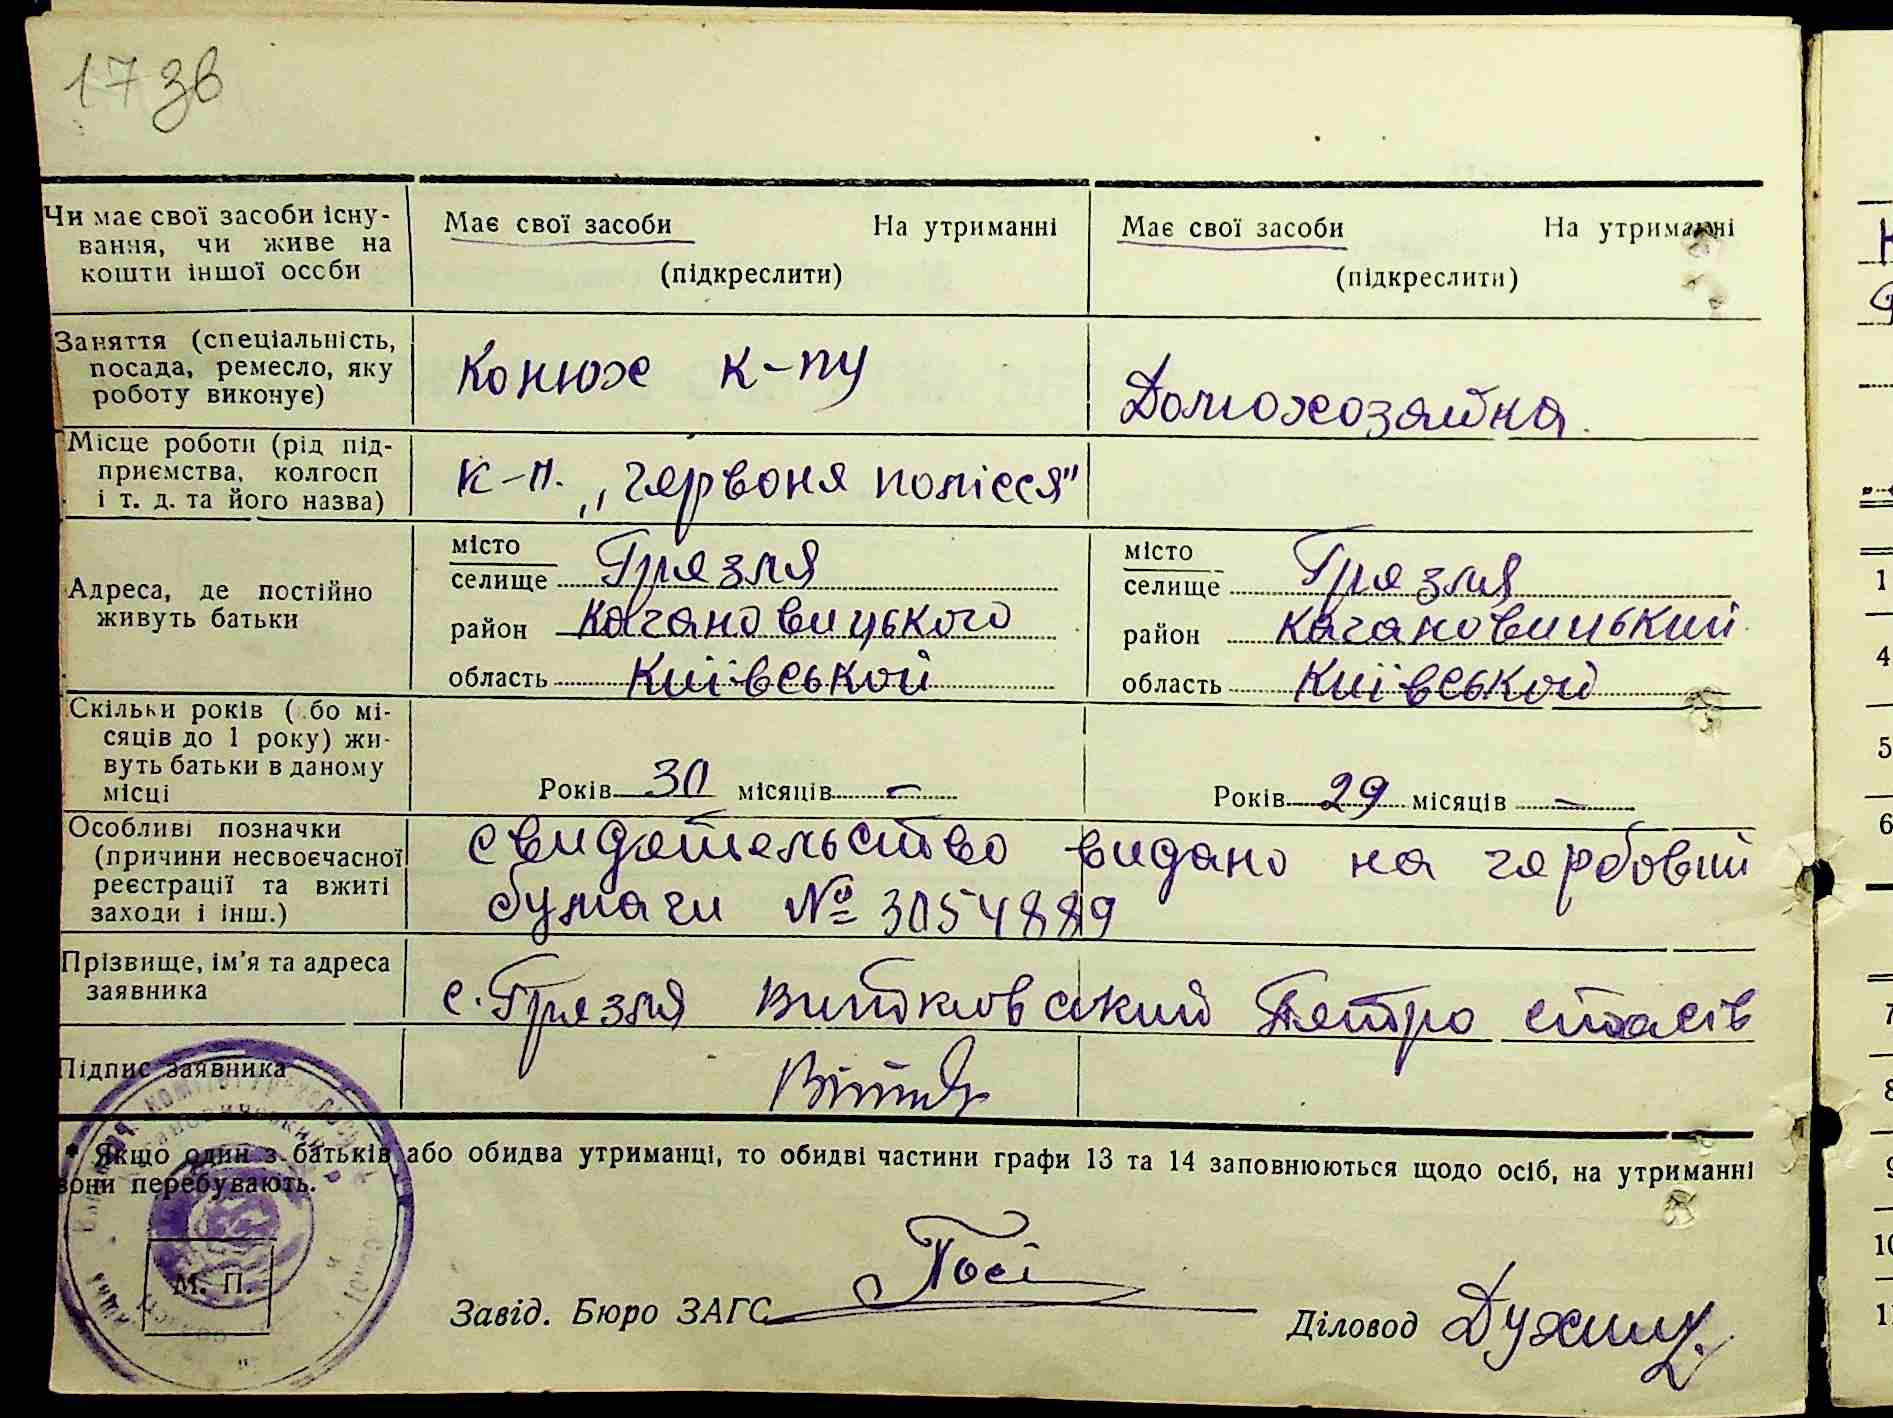 17 зв
Чи має свої засоби існу-
вання, чи живе на
кошти іншої особи
Має свої засоби На утриманні
(підкреслити)
Має свої засоби На утриманні
(підкреслити)
Заняття (спеціальність,
посада, ремесло, яку
роботу виконує)
Конюх к-пу
Домохозяйка
Місце роботи (рід під-
приємства, колгосп
і т. д. та його назва)
к-п. „червоня полісся"
Адреса, де постійно
живуть батьки
місто
селище Грязля
район Кагановицького
область Київськой
місто
селище Грязля
район Кагановицький
область Київськой
Скільки років ( бо мі-
сяців до 1 року) жи-
вуть батьки в даному
місці
Років 30 місяців –
Років 29 місяців –
Особливі позначки
(причини несвоєчасної
реєстрації та вжиті
заходи і інш.)
свидетельство видано на гербовий
бумаги № 3054889
Прізвище, ім'я та адреса
заявника
с. Грязля Витковський Петро
Підпис заявника
* Якщо один з батьків або обидва утриманці, то обидві частини графи 13 та 14 заповнюються щодо осіб, на утриманні
вони перебувають.
М. П.
Завід. Бюро ЗАГС
Діловод
1
4
5
6
7
8
9
10